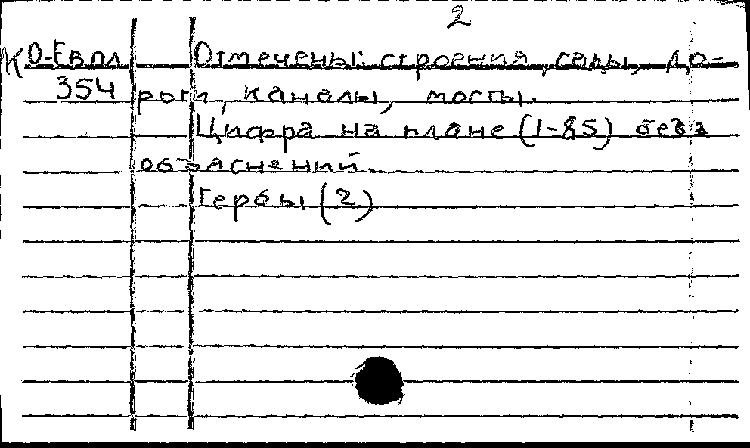 2
К О-Евпл Отмечены: строения, сады, до-
354 роги, каналы, мосты.
Цифра на плане (1-85) без
объяснений.
Гербы (2)